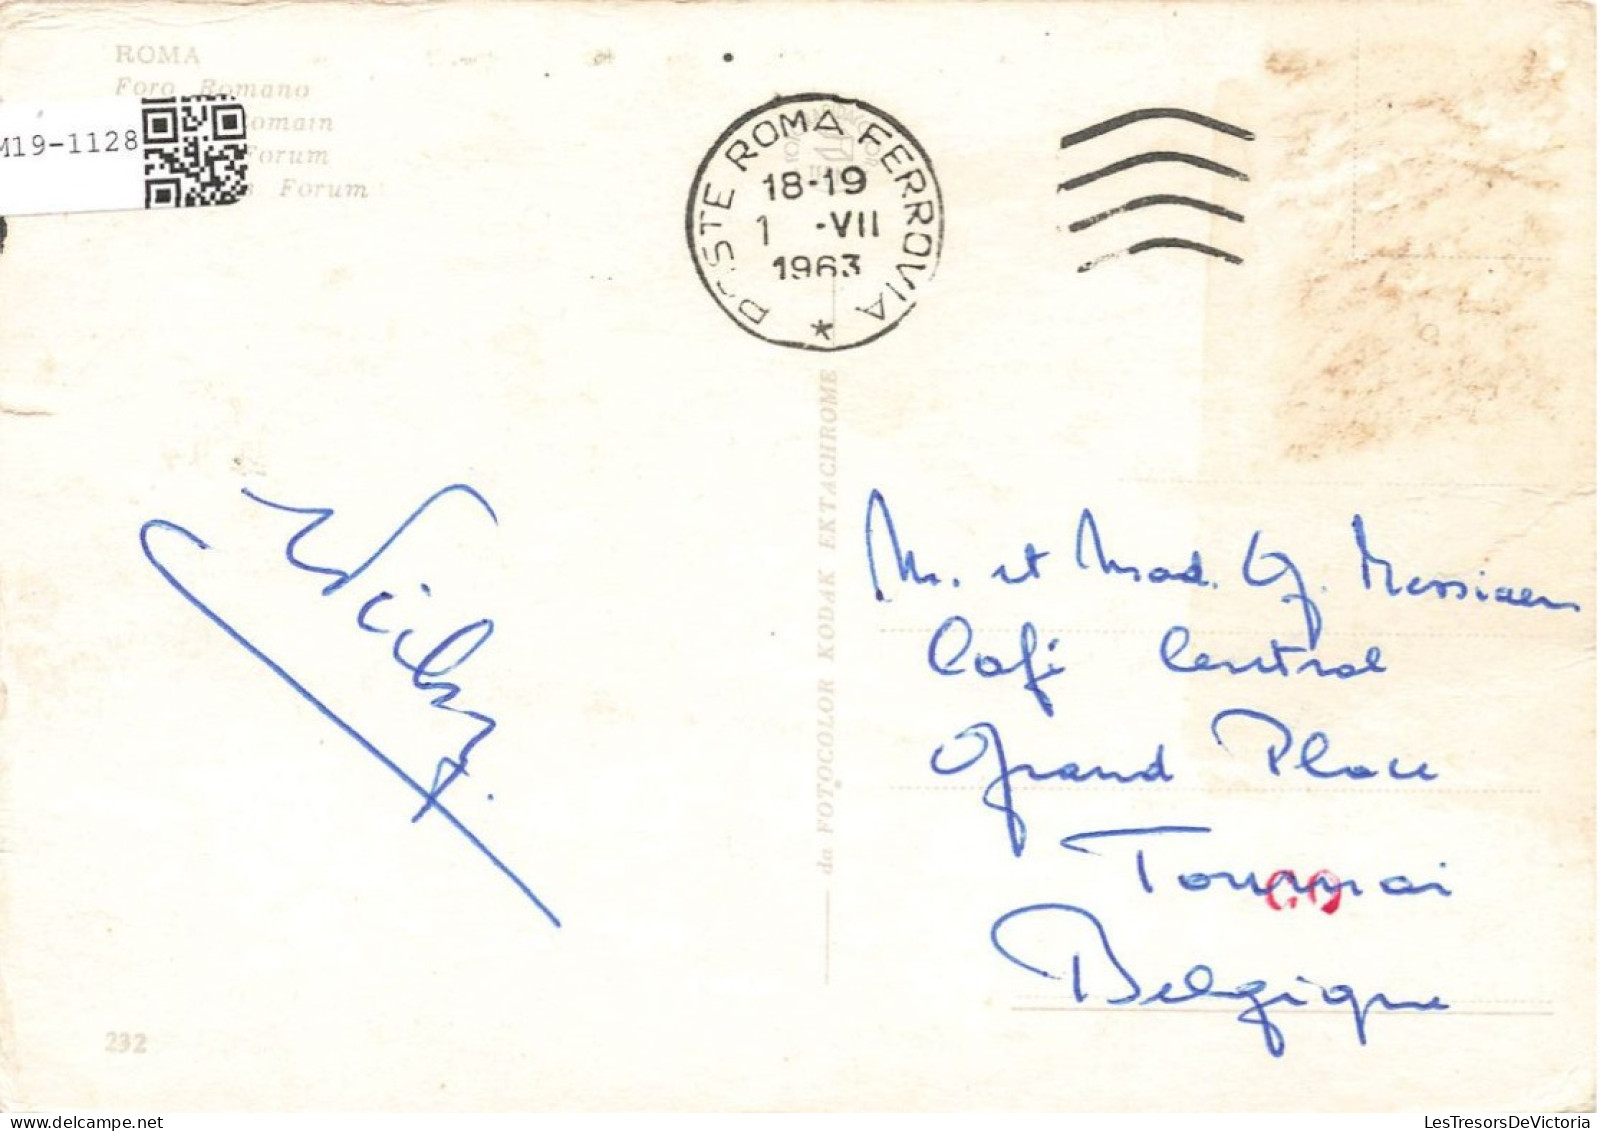 ROMA
Foro Romano
omain
Forum
s Forum
M19-1128
POSTE ROMA FERROVIA
18-19
1 -VII
1963
*
da FOTOCOLOR KODAK EKTACHROME
M. et Mad. G. Messiaen
Café Central
Grand Place
Tournai
Belgique
232
LesTresorsDeVictoria